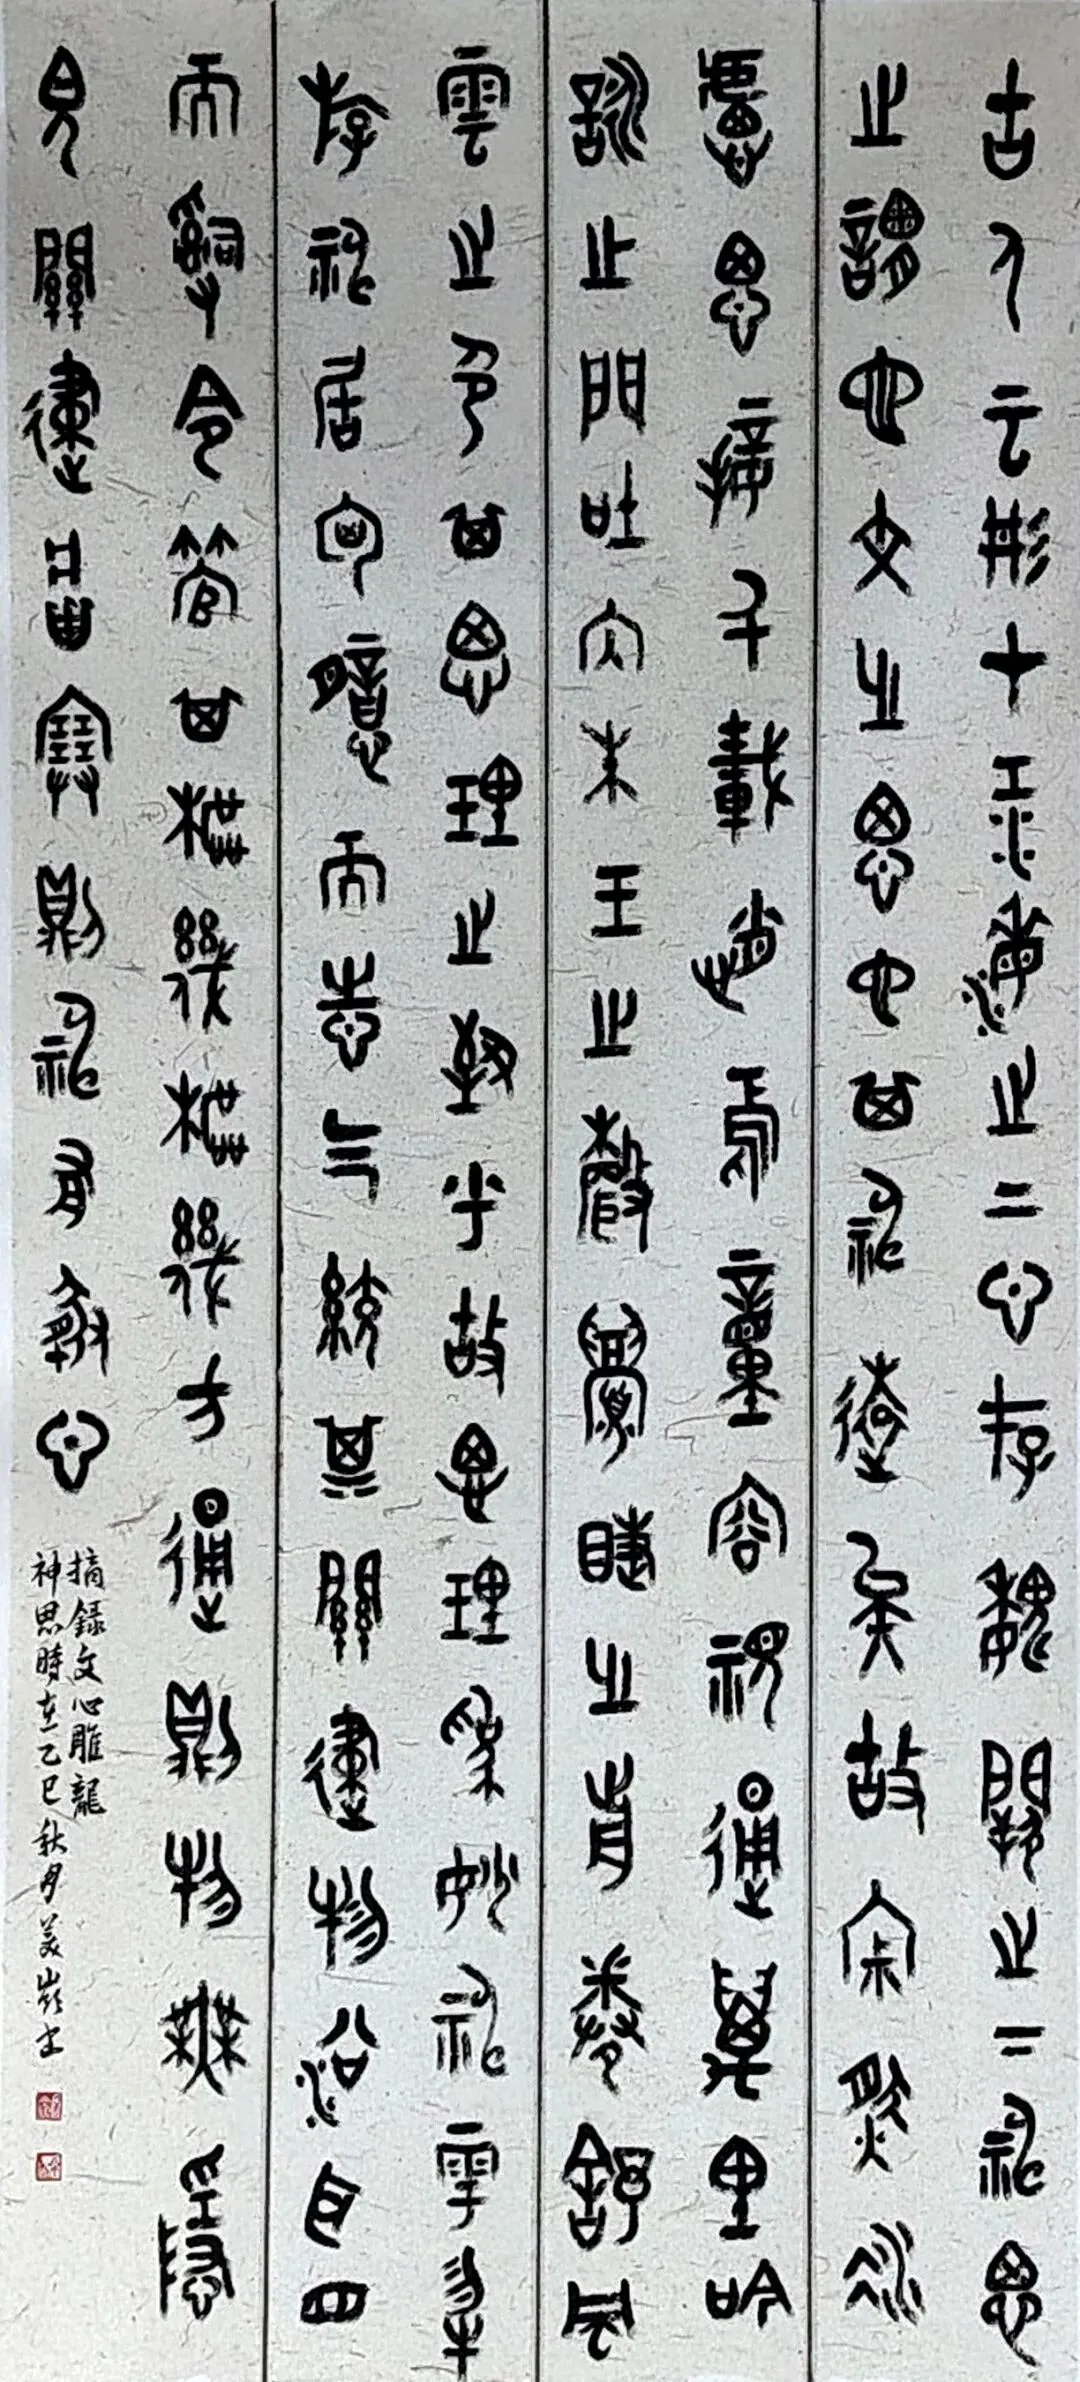 古人云形在江海之上心存魏闕之下神思
之謂也文之思也其神遠矣故寂然凝
慮思接千載悄焉動容視通萬里吟
詠之間吐納珠玉之聲眉睫之前卷舒風
雲之色其思理之致乎故思理為妙神與物
游神居胸臆而志氣統其關鍵物沿耳目
而辭令管其樞機樞機方通則物無隱
貌關鍵將塞則神有遯心
摘錄文心雕龍
神思時在乙巳秋月美書